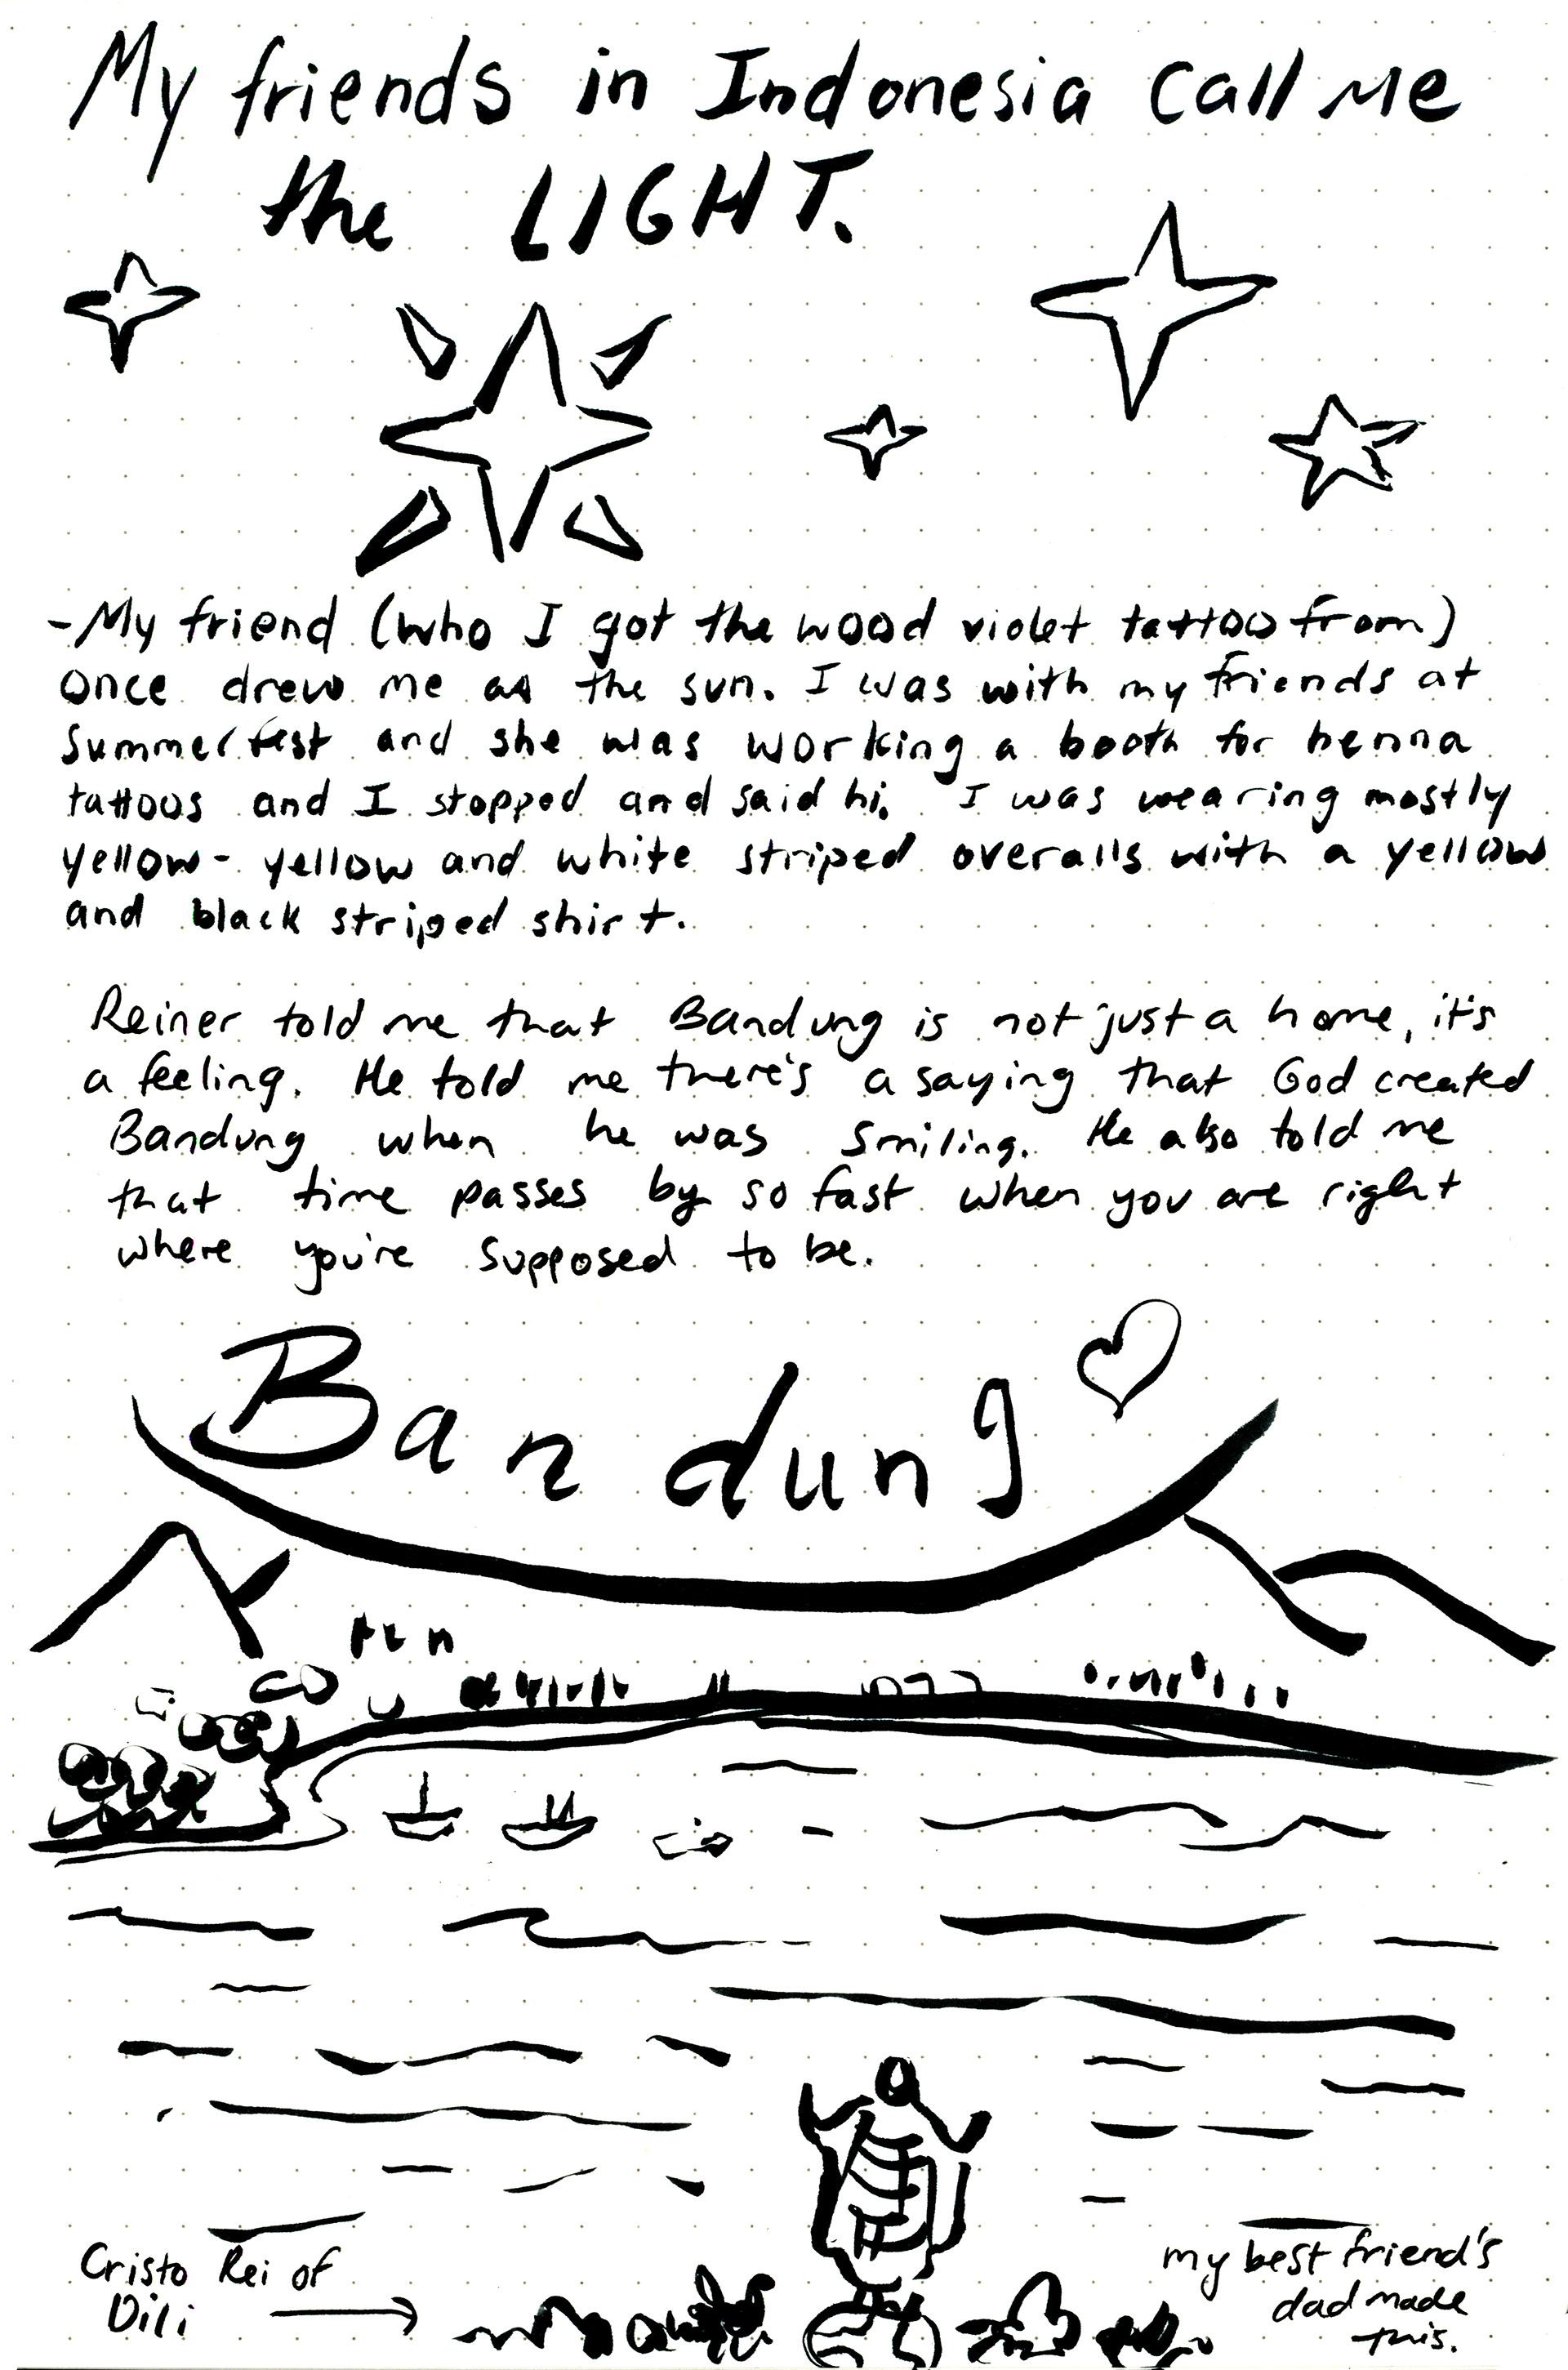 My friends in Indonesia call me
the LIGHT.
-My friend (who I got the wood violet tattoo from)
once drew me as the sun. I was with my friends at
Summerfest and she was working a booth for henna
tattoos and I stopped and said hi. I was wearing mostly
yellow- yellow and white striped overalls with a yellow
and black striped shirt.
Reiner told me that Bandung is not just a home, it's
a feeling. He told me there's a saying that God created
Bandung when he was smiling. He also told me
that time passes by so fast when you are right
where you're supposed to be.
Bandung
Cristo Rei of
Dili
my best friend's
dad made
this.